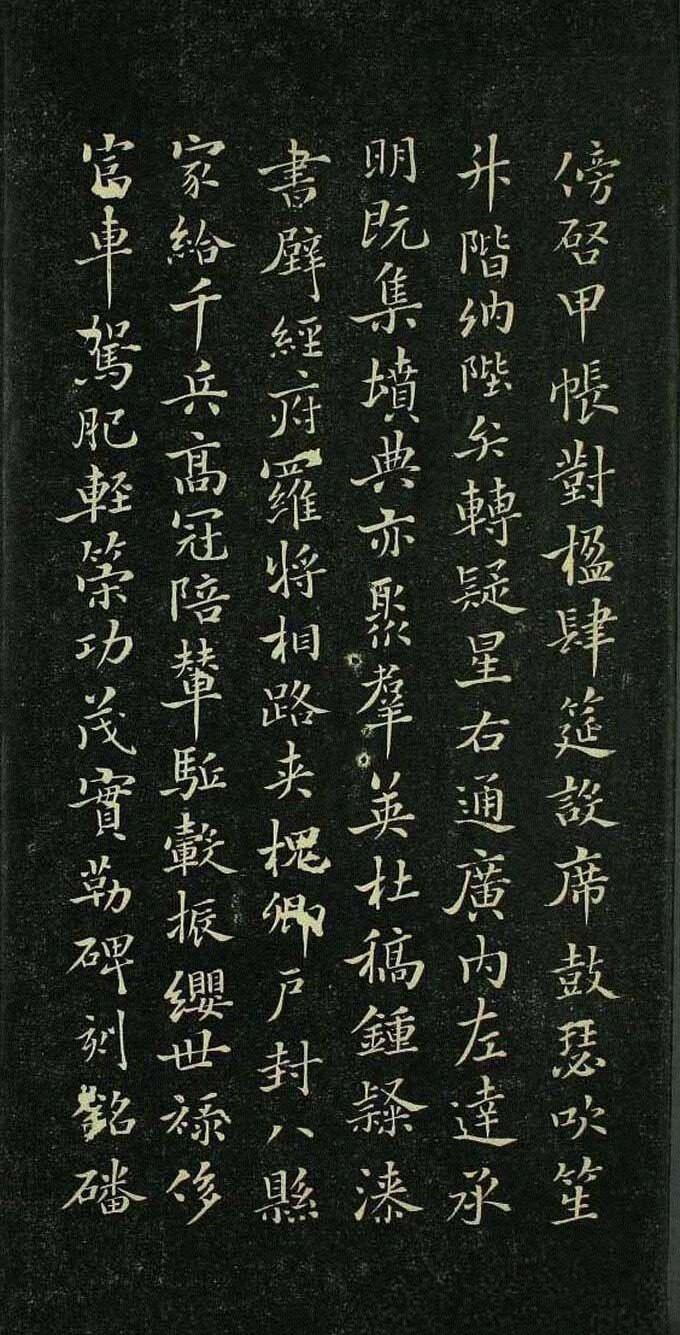 傍啓甲帳對楹肆筵設席鼓瑟吹笙
升階納陛弁轉疑星右通廣內左達承
明既集墳典亦聚羣英杜稿鍾隸漆
書壁經府羅將相路夾槐卿戶封八縣
家給千兵高冠陪輦駈轂振纓世祿侈
富車駕肥輕策功茂實勒碑刻銘磻